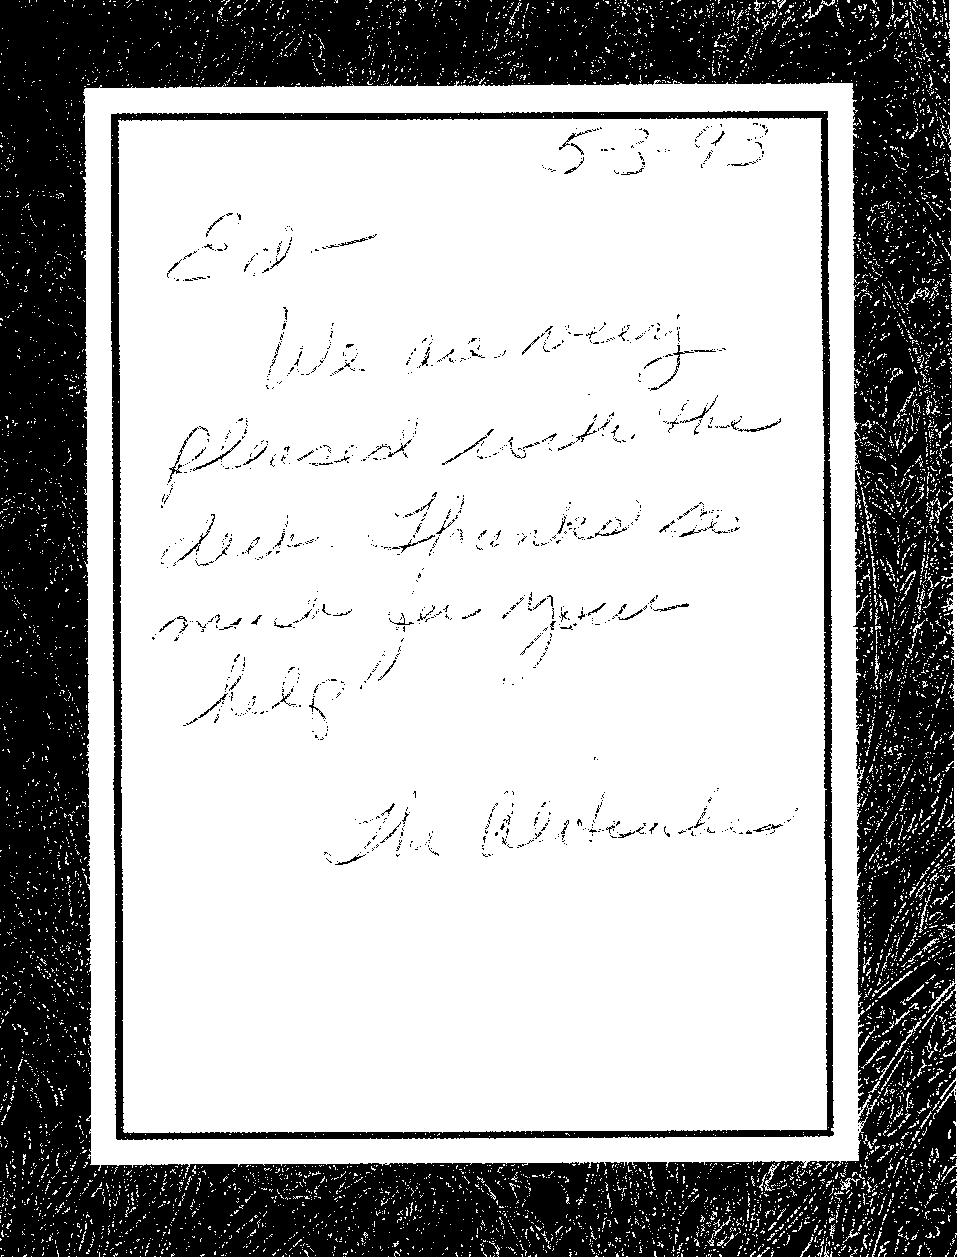 5-3-93
Ed —
We are very
pleased with the
deck. Thanks so
much for your
help!!
The